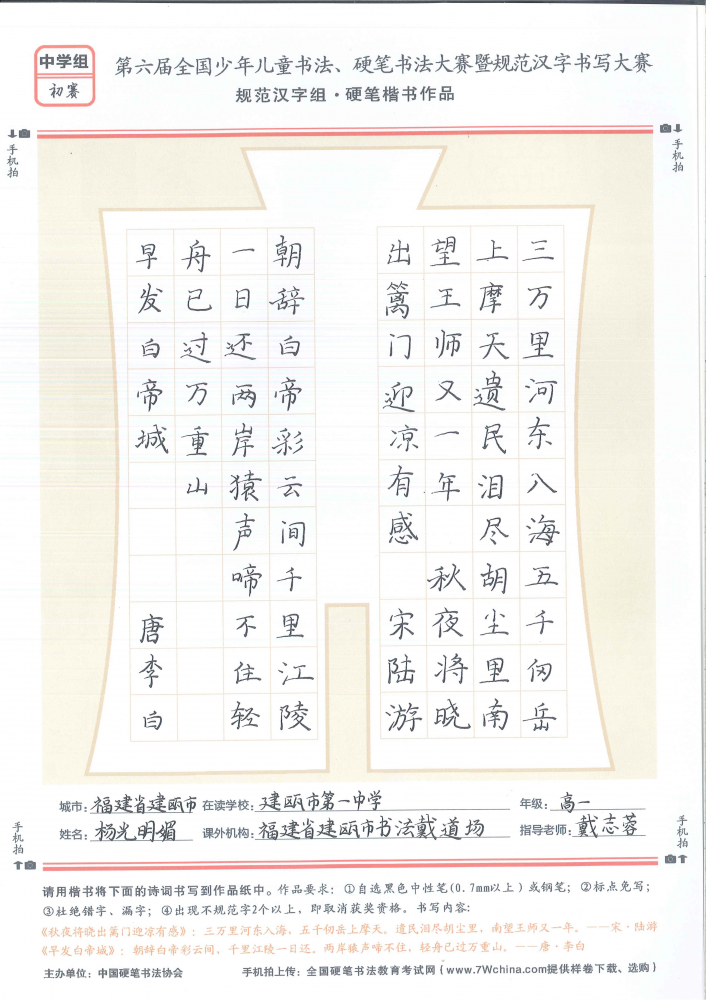 中学组
初赛
第六届全国少年儿童书法、硬笔书法大赛暨规范汉字书写大赛
规范汉字组·硬笔楷书作品
手机拍
手机拍
三万里河东入海五千仞岳
上摩天遗民泪尽胡尘里南
望王师又一年 秋夜将晓
出篱门迎凉有感 宋陆游
朝辞白帝彩云间千里江陵
一日还两岸猿声啼不住轻
舟已过万重山
早发白帝城 唐李白
城市：福建省建瓯市 在读学校：建瓯市第一中学 年级：高一
姓名：杨光明媚 课外机构：福建省建瓯市书法戴道场 指导老师：戴志蓉
手机拍
手机拍
请用楷书将下面的诗词书写到作品纸中。作品要求：①自选黑色中性笔(0.7mm以上)或钢笔；②标点免写；
③杜绝错字、漏字；④出现不规范字2个以上，即取消获奖资格。书写内容：
《秋夜将晓出篱门迎凉有感》：三万里河东入海，五千仞岳上摩天。遗民泪尽胡尘里，南望王师又一年。——宋·陆游
《早发白帝城》：朝辞白帝彩云间，千里江陵一日还。两岸猿声啼不住，轻舟已过万重山。——唐·李白
主办单位：中国硬笔书法协会 手机拍上传：全国硬笔书法教育考试网（www.7Wchina.com提供样卷下载、选购）